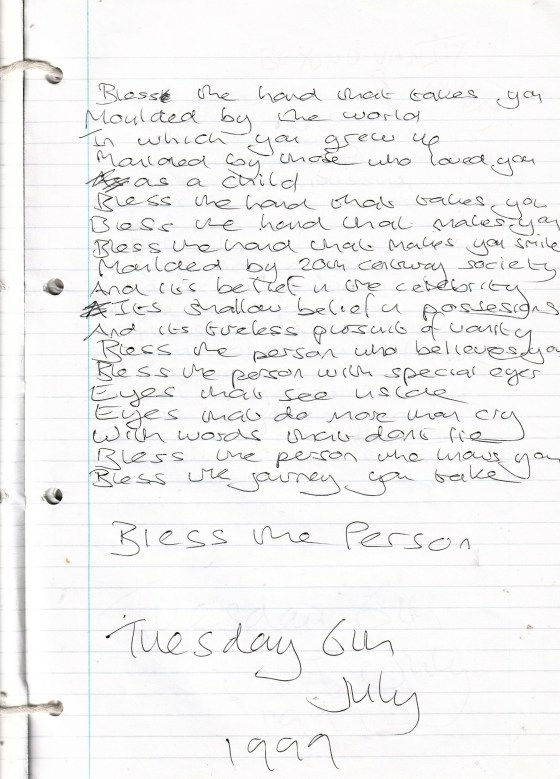 Bless the hand that takes you
Moulded by the world
In which you grew up
Moulded by those who loved you
as a child
Bless the hand that takes you
Bless the hand that makes you
Bless the hand that makes you smile
Moulded by 20th century society
And it's belief in the celebrity
Its shallow belief in possesions
And its tireless pursuit of vanity
Bless the person who believes you
Bless the person with special eyes
Eyes that see inside
Eyes that do more than cry
With words that dont lie
Bless the person who knows you
Bless the journey you take
Bless the Person
Tuesday 6th
July
1999